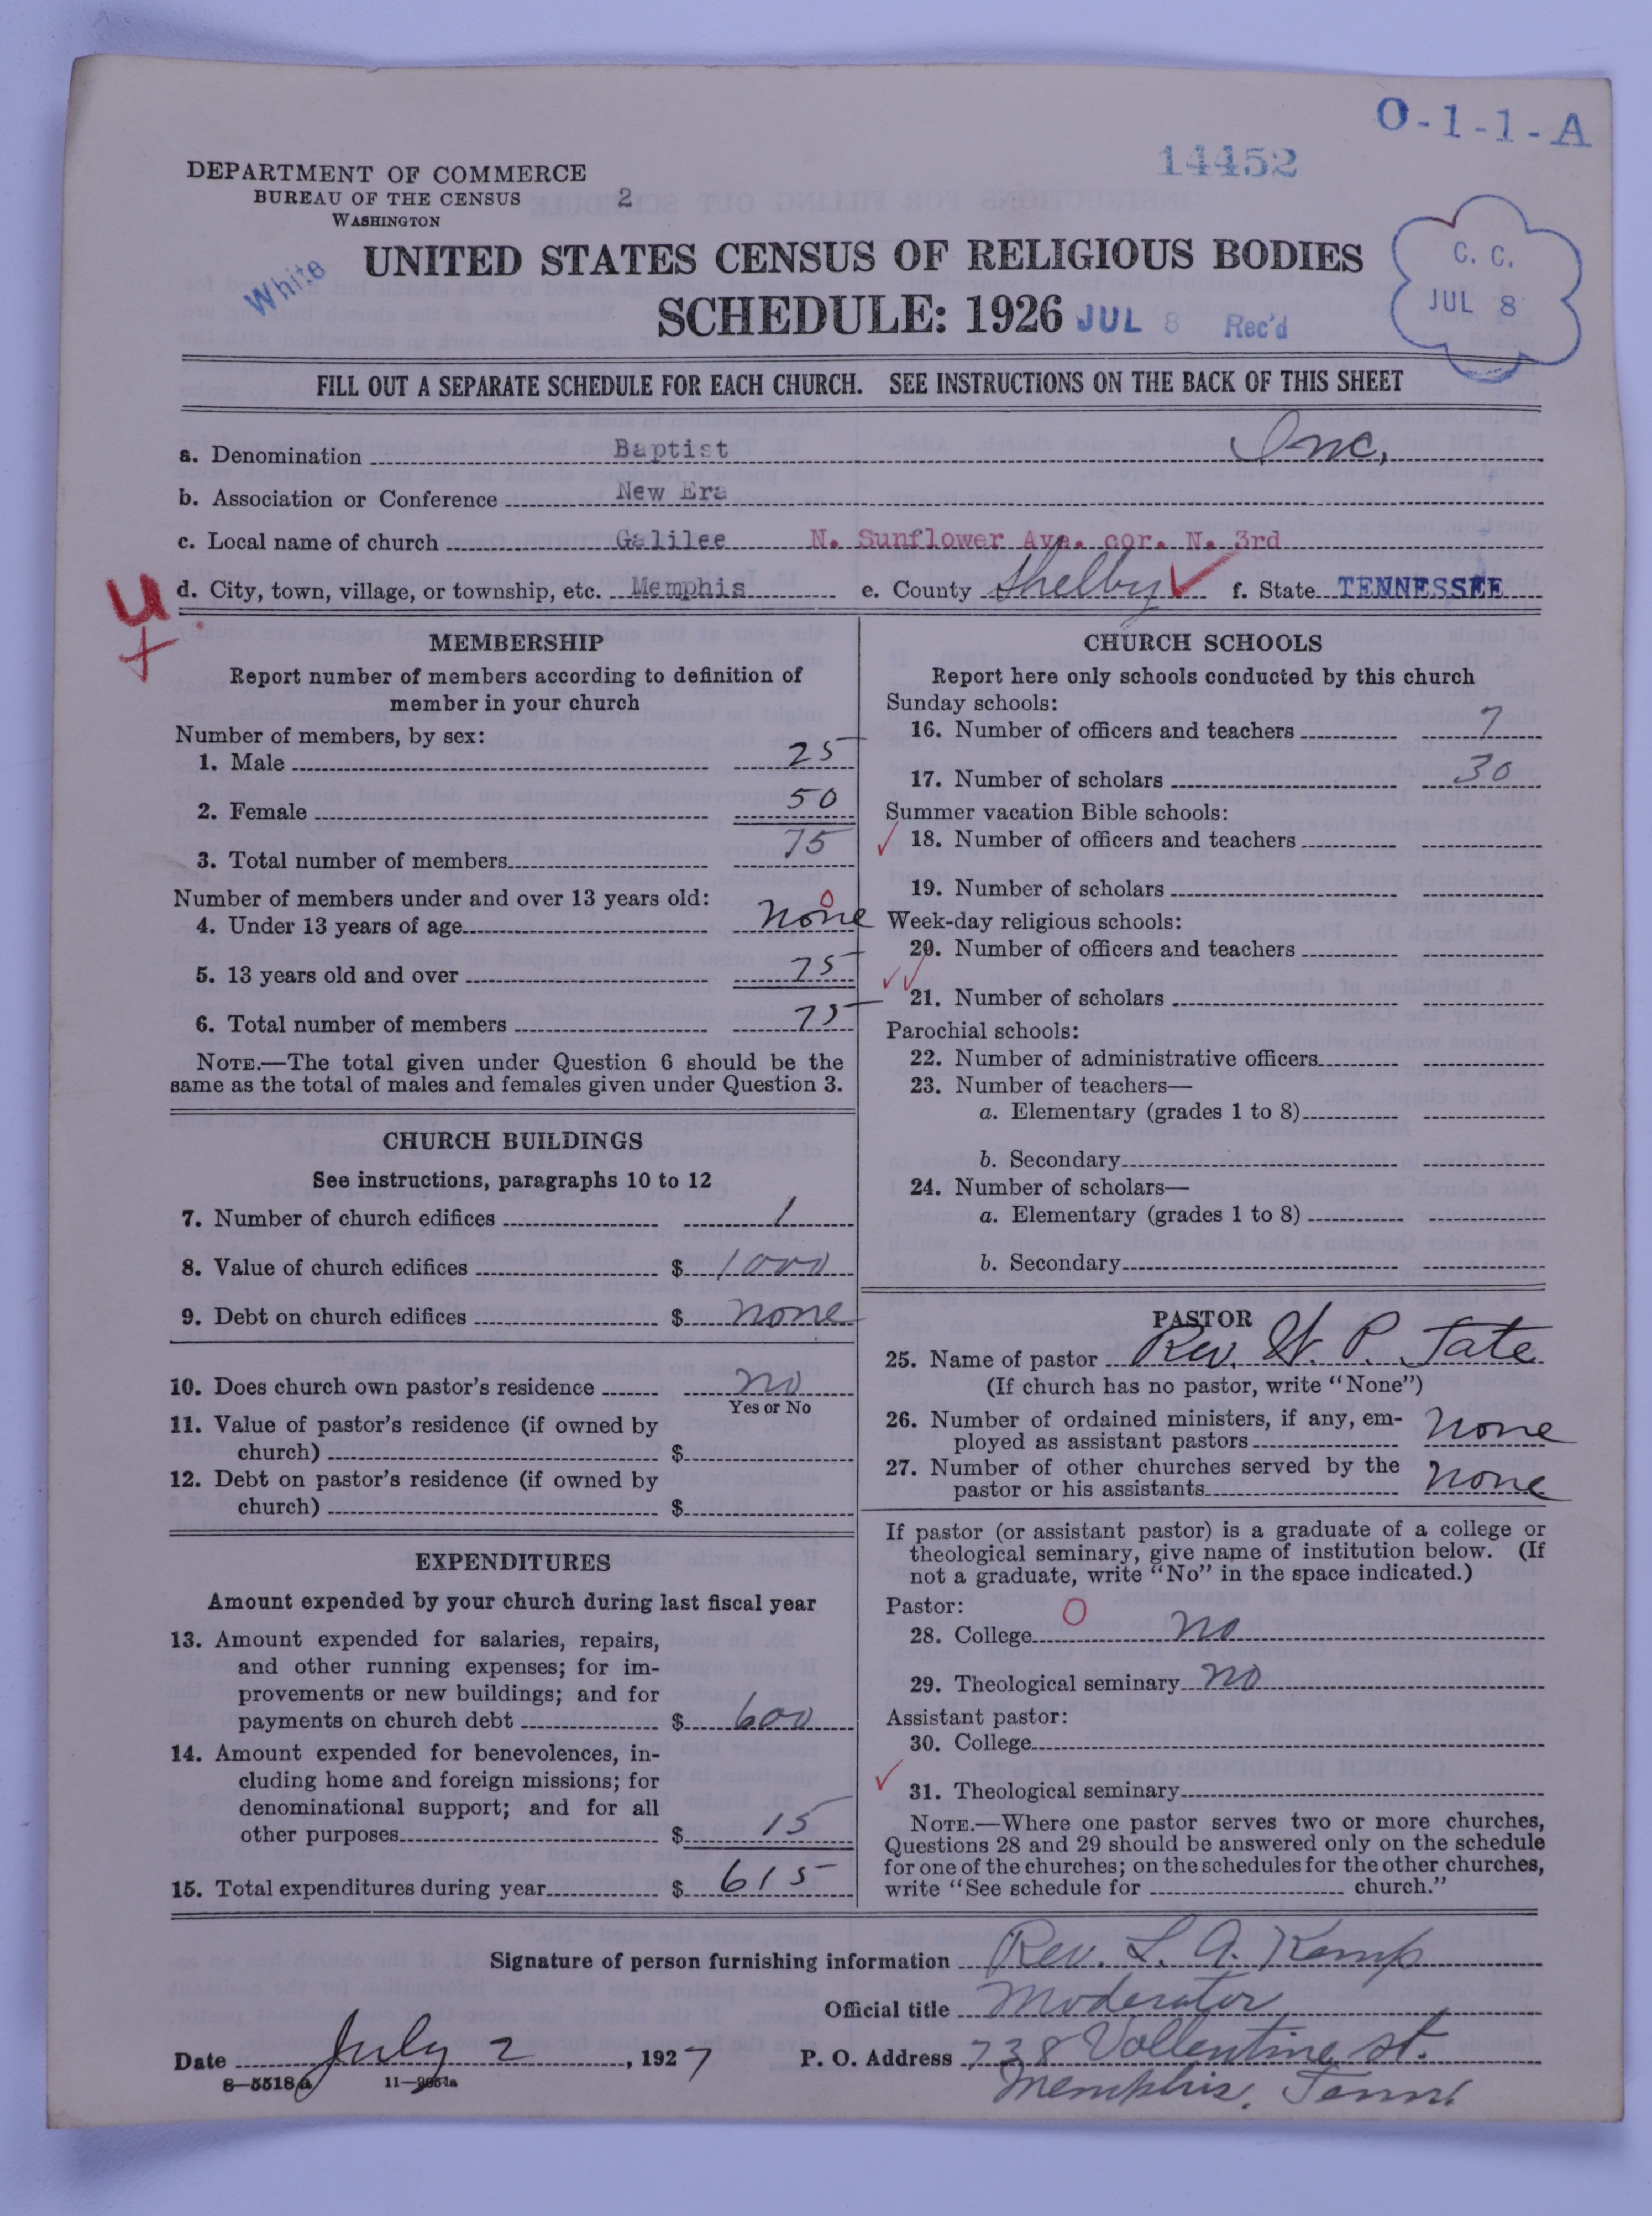 O-1-1-A
14452
DEPARTMENT OF COMMERCE
BUREAU OF THE CENSUS
WASHINGTON
2
White
UNITED STATES CENSUS OF RELIGIOUS BODIES
SCHEDULE: 1926
JUL 8 Rec'd
C. C.
JUL 8
FILL OUT A SEPARATE SCHEDULE FOR EACH CHURCH. SEE INSTRUCTIONS ON THE BACK OF THIS SHEET
a. Denomination Baptist Inc.
b. Association or Conference New Era
c. Local name of church Galilee N. Sunflower Ave. cor. N. 3rd
d. City, town, village, or township, etc. Memphis e. County Shelby f. State TENNESSEE
U
MEMBERSHIP
Report number of members according to definition of
member in your church
Number of members, by sex:
1. Male 25
2. Female 50
3. Total number of members 75
Number of members under and over 13 years old:
0
4. Under 13 years of age none
5. 13 years old and over 75
6. Total number of members 75
NOTE.—The total given under Question 6 should be the
same as the total of males and females given under Question 3.
CHURCH BUILDINGS
See instructions, paragraphs 10 to 12
7. Number of church edifices 1
8. Value of church edifices $ 1000
9. Debt on church edifices $ none
10. Does church own pastor's residence no
Yes or No
11. Value of pastor's residence (if owned by
church) $
12. Debt on pastor's residence (if owned by
church) $
EXPENDITURES
Amount expended by your church during last fiscal year
13. Amount expended for salaries, repairs,
and other running expenses; for im-
provements or new buildings; and for
payments on church debt $ 600
14. Amount expended for benevolences, in-
cluding home and foreign missions; for
denominational support; and for all
other purposes $ 15
15. Total expenditures during year $ 615
CHURCH SCHOOLS
Report here only schools conducted by this church
Sunday schools:
16. Number of officers and teachers 7
17. Number of scholars 30
Summer vacation Bible schools:
18. Number of officers and teachers
19. Number of scholars
Week-day religious schools:
20. Number of officers and teachers
21. Number of scholars
Parochial schools:
22. Number of administrative officers
23. Number of teachers—
a. Elementary (grades 1 to 8)
b. Secondary
24. Number of scholars—
a. Elementary (grades 1 to 8)
b. Secondary
PASTOR
25. Name of pastor Rev. W. P. Tate
(If church has no pastor, write "None")
26. Number of ordained ministers, if any, em-
ployed as assistant pastors none
27. Number of other churches served by the
pastor or his assistants none
If pastor (or assistant pastor) is a graduate of a college or
theological seminary, give name of institution below. (If
not a graduate, write "No" in the space indicated.)
Pastor: 0
28. College no
29. Theological seminary no
Assistant pastor:
30. College
31. Theological seminary
NOTE.—Where one pastor serves two or more churches,
Questions 28 and 29 should be answered only on the schedule
for one of the churches; on the schedules for the other churches,
write "See schedule for church."
Signature of person furnishing information Rev. L. A. Kemp
Official title Moderator
Date July 2, 1927 P. O. Address 738 Vollentine st.
8-5518a
Memphis, Tenn.